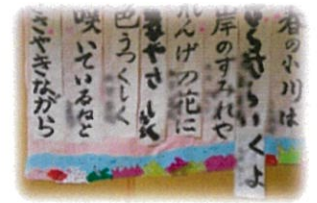 春の小川は
さらさらいくよ
岸のすみれや
れんげの花に
やさしく
色うつくしく
咲いているねと
さやきながら